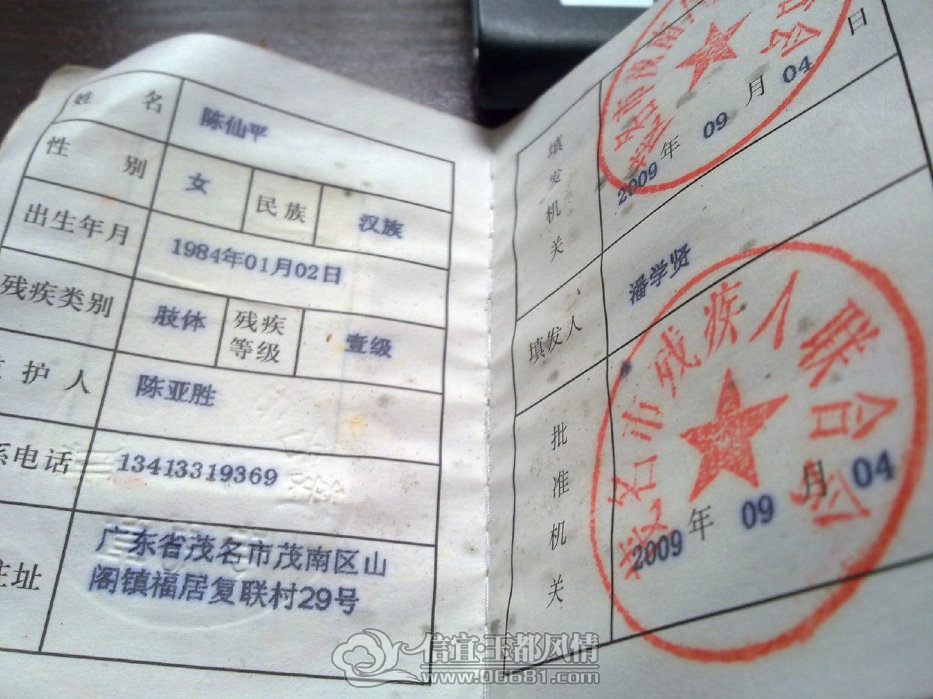 姓名 陈仙平
性别 女 民族 汉族
出生年月 1984年01月02日
残疾类别 肢体 残疾等级 壹级
护人 陈亚胜
系电话 13413319369
住址 广东省茂名市茂南区山
阁镇福居复联村29号
填发机关
2009年09月04日
填发人 潘学贤
批准机关
茂名市残疾人联合会
2009年09月04
信宜·玉都风情
www.06681.com